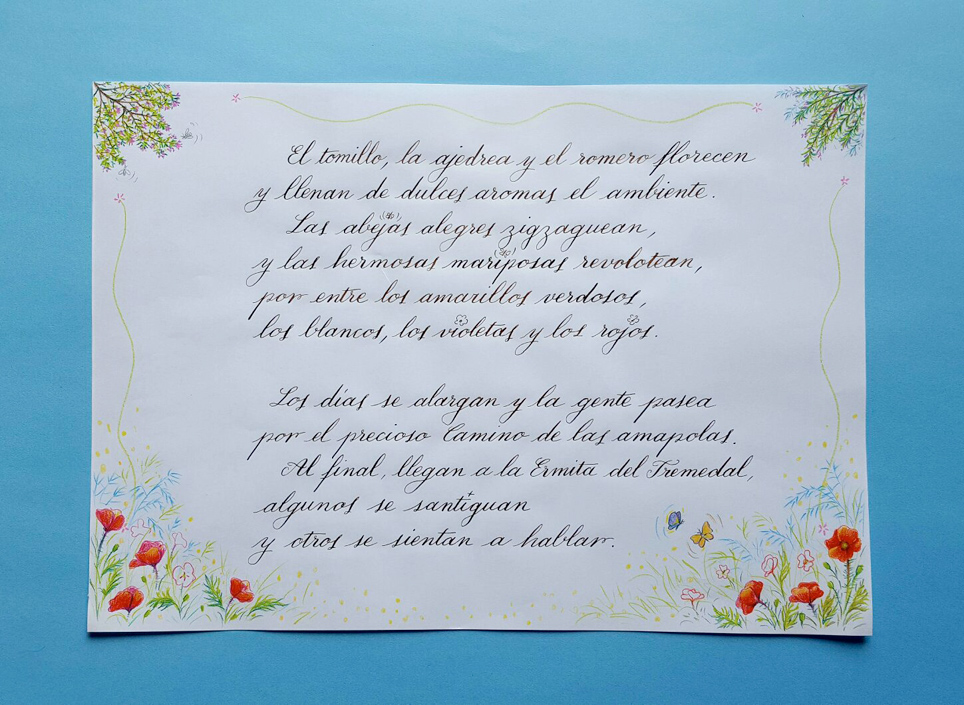 El tomillo, la ajedrea y el romero florecen
y llenan de dulces aromas el ambiente.
Las abejas alegres zigzaguean,
y las hermosas mariposas revolotean,
por entre los amarillos verdosos,
los blancos, los violetas y los rojos.
Los días se alargan y la gente pasea
por el precioso Camino de las amapolas.
Al final, llegan a la Ermita del Tremedal,
algunos se santiguan
y otros se sientan a hablar.